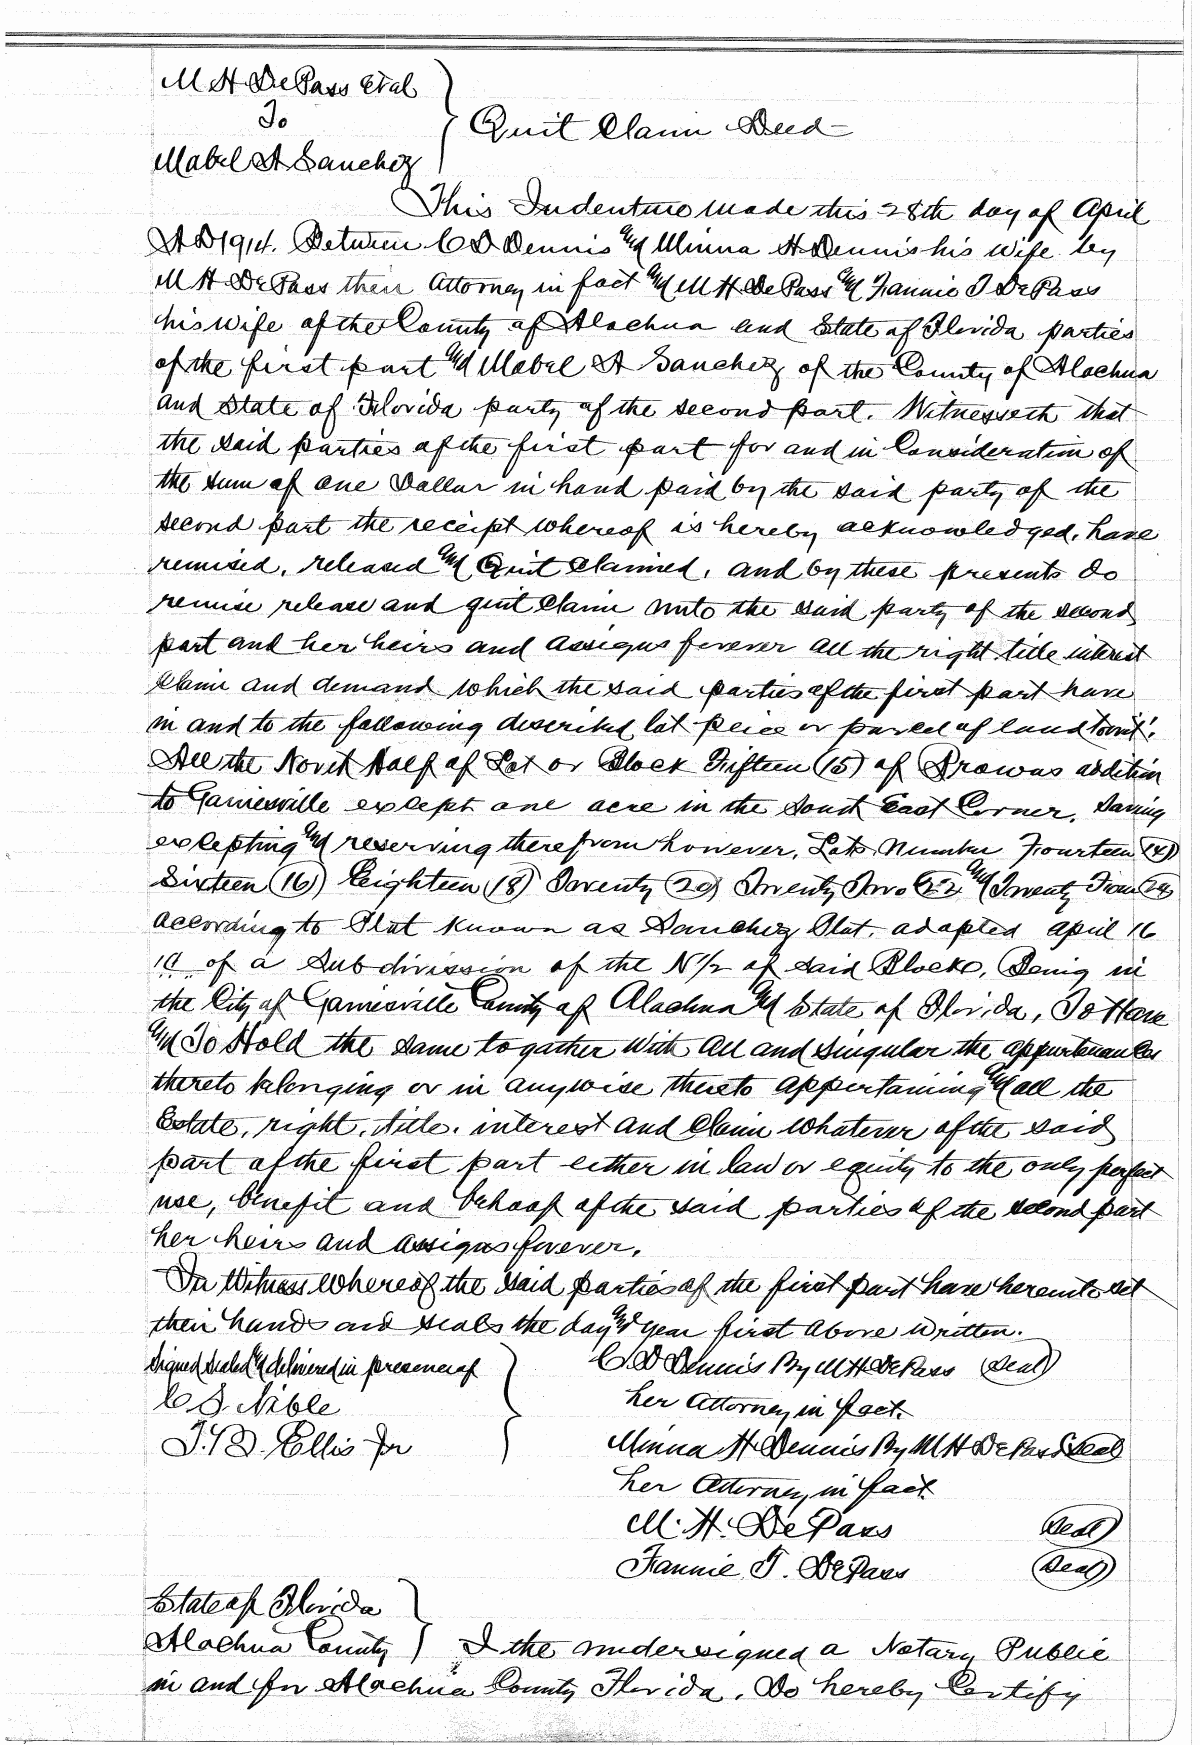 M H DePass etal
To
Mabel A Sanchez
Quit Claim Deed
This Indenture made this 28th day of April
A D 1914. Between C D Dennis and Minna H Dennis his wife by
M H DePass their Attorney in fact and M H DePass and Fannie T DePass
his wife of the County of Alachua and State of Florida parties
of the first part and Mabel A Sanchez of the County of Alachua
and State of Florida party of the second part. Witnesseth that
the said parties of the first part for and in Consideration of
the sum of one Dollar in hand paid by the said party of the
second part the receipt whereof is hereby acknowledged, have
remised, released and Quit Claimed, and by these presents do
remise release and quit claim unto the said party of the second
part and her heirs and assigns forever all the right title interest
claim and demand which the said parties of the first part have
in and to the following described lot peice or parcel of land towit:
All the North Half of Lot or Block Fifteen (15) of Browns addition
to Gainesville except one acre in the South East Corner. Saving
excepting and reserving therefrom however, Lots Number Fourteen (14)
Sixteen (16) Eighteen (18) Twenty (20) Twenty Two (22) and Twenty Four (24)
according to Plat known as Sanchez Plat. adopted April 16
19 of a Subdivision of the N 1/2 of said Blocks, Being in
the City of Gainesville County of Alachua and State of Florida, To Have
and To Hold the same togather with all and singular the appurtenances
thereto belonging or in anywise thereto appertaining and all the
Estate, right, title. interest and claim whatever of the said
part of the first part either in law or equity to the only perfect
use, benefit and behoof of the said parties of the second part
her heirs and assigns forever.
In Witness whereof the said parties of the first part have hereunto set
their hands and seals the day and year first above written.
Signed sealed and delivered in presence of
C. D Dennis By M H DePass (Seal)
C S. Nible
her Attorney in fact.
T. B. Ellis Jr
Minna H Dennis By M H DePass (Seal)
her Attorney in fact
M. H. DePass (Seal)
Fannie. T. DePass (Seal)
State of Florida
Alachua County I the undersigned a Notary Public
in and for Alachua County Florida, Do hereby Certify